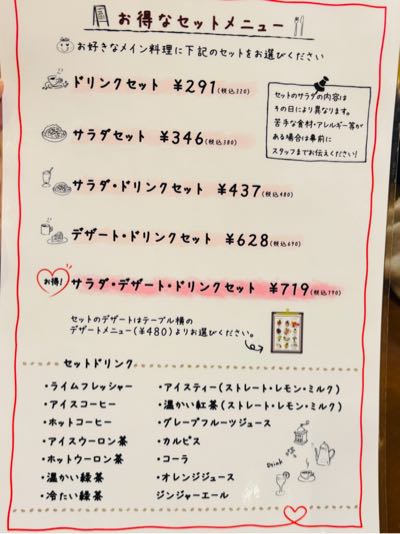 お得なセットメニュー
お好きなメイン料理に下記のセットをお選びください
ドリンクセット ¥291(税込320)
サラダセット ¥346(税込380)
セットのサラダの内容は
その日により異なります。
苦手な食材・アレルギー等が
ある場合は事前に
スタッフまでお伝えください!
サラダ・ドリンクセット ¥437(税込480)
デザート・ドリンクセット ¥628(税込690)
お得! サラダ・デザート・ドリンクセット ¥719(税込790)
セットのデザートはテーブル横の
デザートメニュー(¥480)よりお選びください。
セットドリンク
・ライムフレッシャー
・アイスコーヒー
・ホットコーヒー
・アイスウーロン茶
・ホットウーロン茶
・温かい緑茶
・冷たい緑茶
・アイスティー(ストレート・レモン・ミルク)
・温かい紅茶(ストレート・レモン・ミルク)
・グレープフルーツジュース
・カルピス
・コーラ
・オレンジジュース
ジンジャーエール
Drink